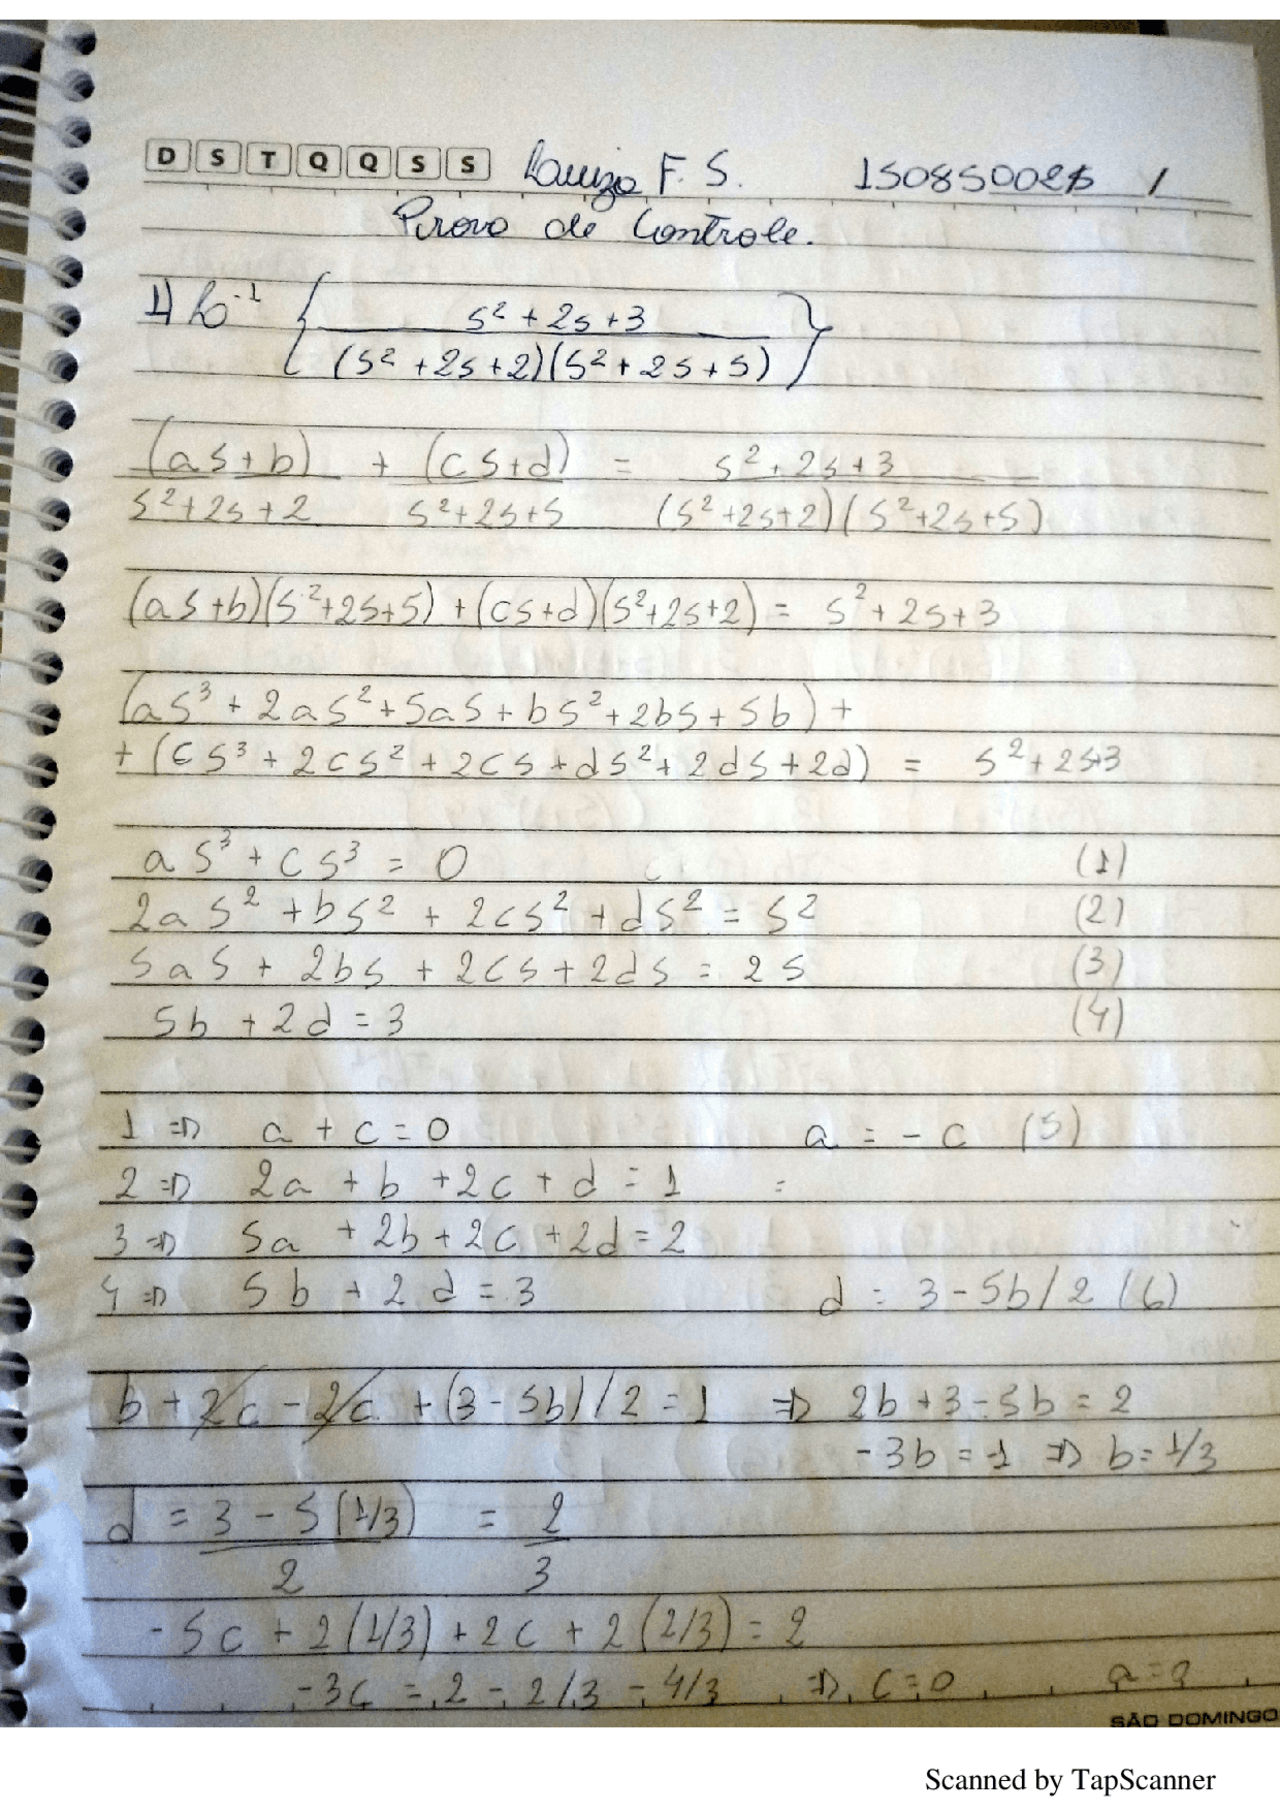 D S T Q Q S S F. S. 150850025 /
Prova de Controle.
1) L⁻¹ { s² + 2s + 3
(s² + 2s + 2)(s² + 2s + 5) }
(as + b) + (cs + d) = s² + 2s + 3
s² + 2s + 2 s² + 2s + 5 (s² + 2s + 2)(s² + 2s + 5)
(as + b)(s² + 2s + 5) + (cs + d)(s² + 2s + 2) = s² + 2s + 3
(as³ + 2as² + 5as + bs² + 2bs + 5b) +
+ (cs³ + 2cs² + 2cs + ds² + 2ds + 2d) = s² + 2s+3
as³ + cs³ = 0 (1)
2as² + bs² + 2cs² + ds² = s² (2)
5as + 2bs + 2cs + 2ds = 2s (3)
5b + 2d = 3 (4)
1 => a + c = 0 a = - c (5)
2 => 2a + b + 2c + d = 1 =
3 => 5a + 2b + 2c + 2d = 2
4 => 5b + 2d = 3 d = 3 - 5b/2 (6)
b + 2c - 2c + (3 - 5b)/2 = 1 => 2b + 3 - 5b = 2
-3b = -1 => b = 1/3
d = 3 - 5(1/3) = 2
2 3
-5c + 2(1/3) + 2c + 2(2/3) = 2
-3c = 2 - 2/3 - 4/3 => c = 0 a = 0
SÃO DOMINGO
Scanned by TapScanner